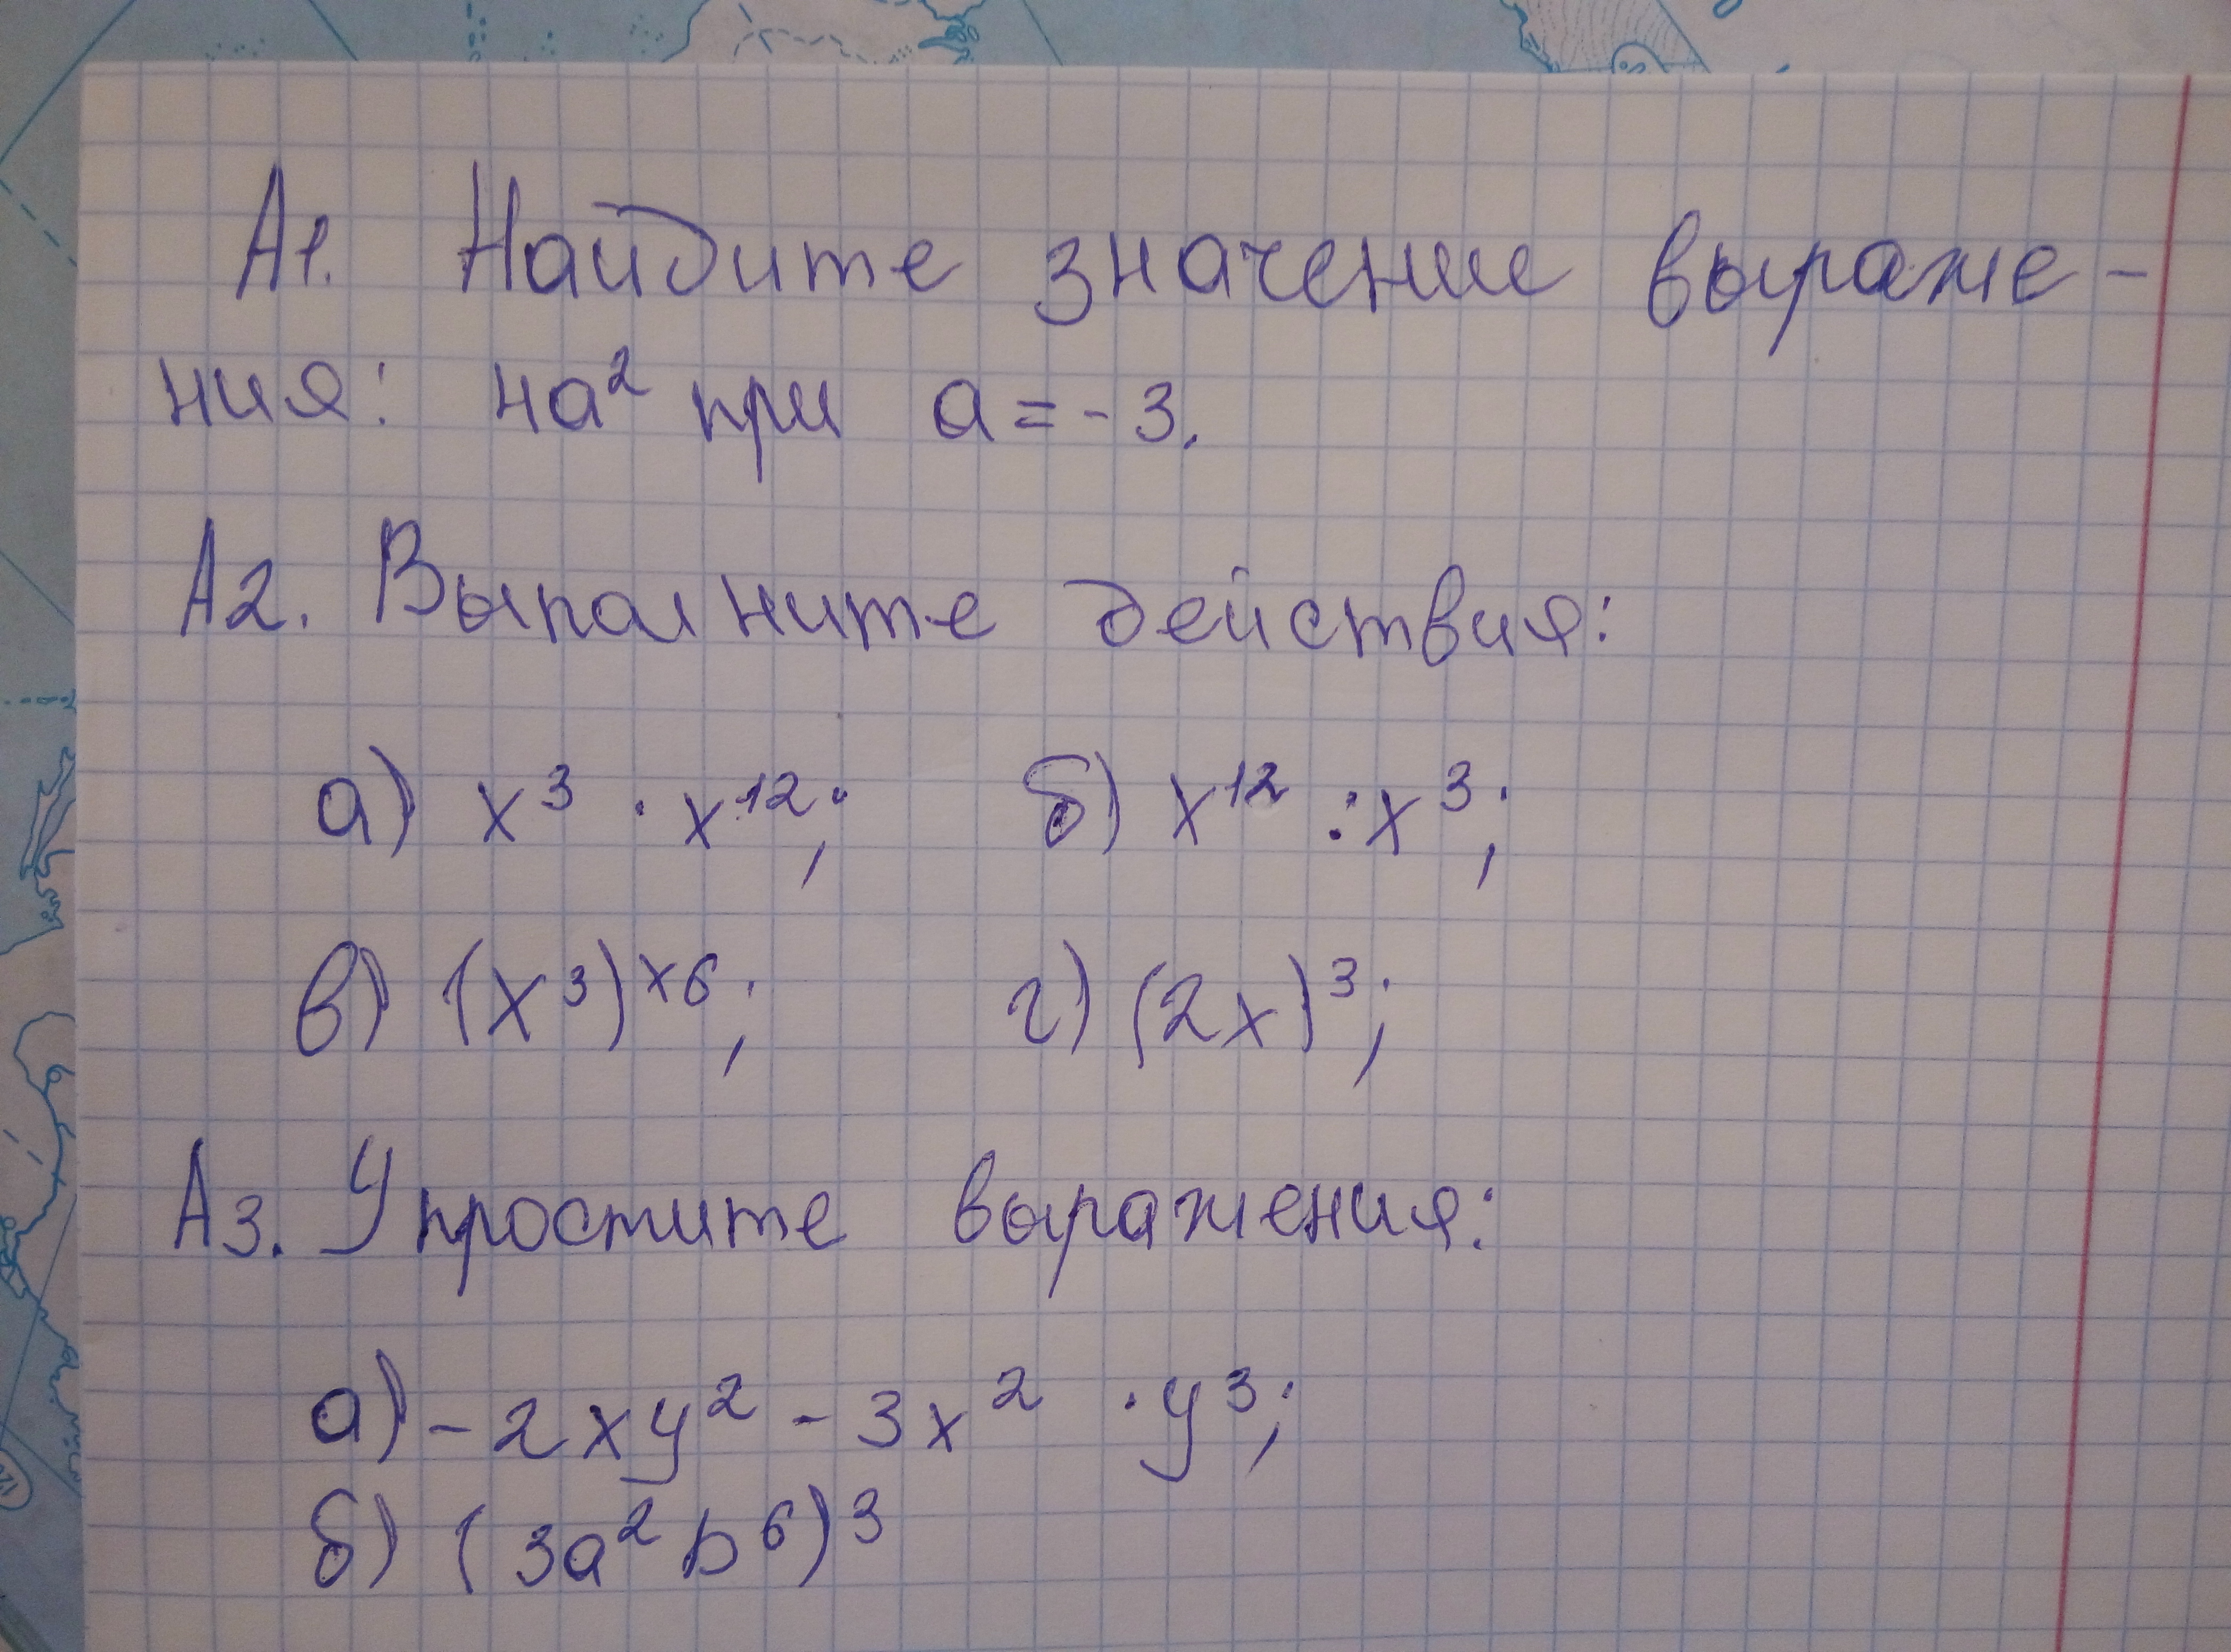 А1. Найдите значение выраже-
ния: 4a² при a = -3.
А2. Выполните действия:
а) x³ · x¹²; б) x¹² : x³;
в) (x³)ˣ⁶; г) (2x)³;
А3. Упростите выражения:
а) -2xy² - 3x² · y³;
б) (3a²b⁶)³